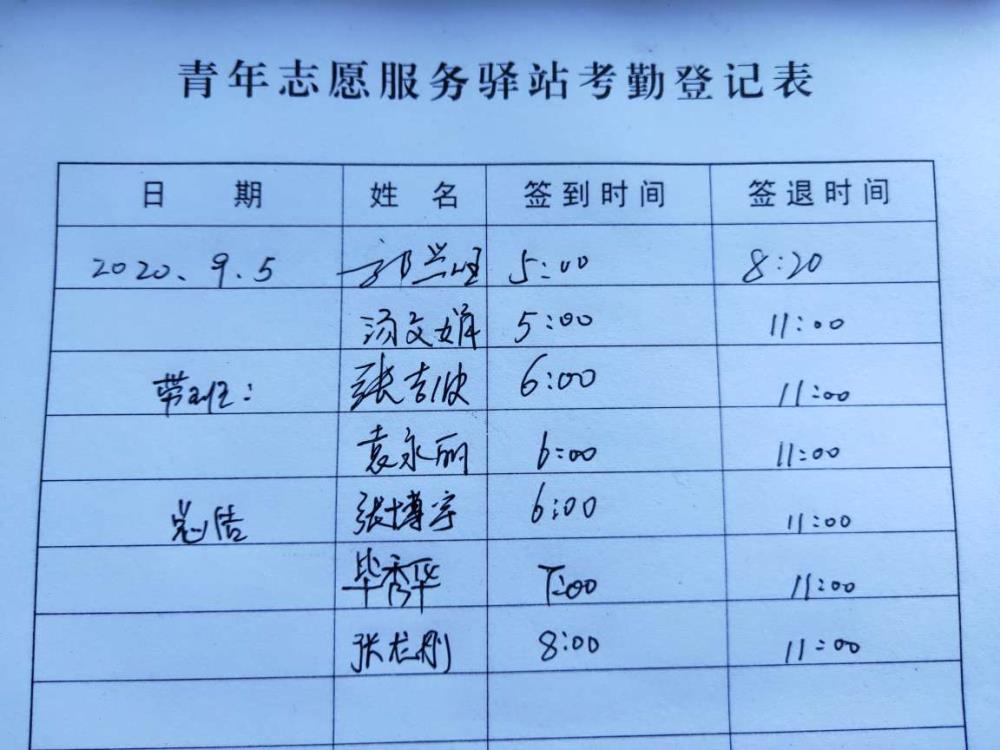 青年志愿服务驿站考勤登记表
日期 姓名 签到时间 签退时间
2020、9.5 5:00 8:20
汤文娟 5:00 11:00
带班: 张吉波 6:00 11:00
袁永丽 6:00 11:00
总结 张博宇 6:00 11:00
毕秀华 7:00 11:00
张龙刚 8:00 11:00